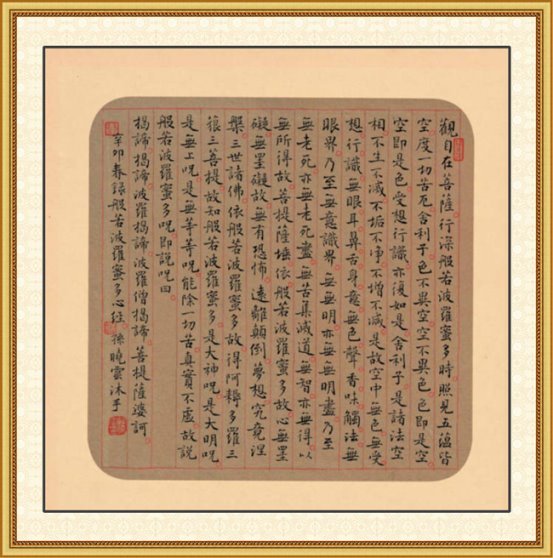 觀自在菩薩行深般若波羅蜜多時照見五蘊皆
空度一切苦厄舍利子色不異空空不異色色即是空
空即是色受想行識亦復如是舍利子是諸法空
相不生不滅不垢不淨不增不減是故空中無色無受
想行識無眼耳鼻舌身意無色聲香味觸法無
眼界乃至無意識界無無明亦無無明盡乃至
無老死亦無老死盡無苦集滅道無智亦無得以
無所得故菩提薩埵依般若波羅蜜多故心無罣
礙無罣礙故無有恐怖遠離顛倒夢想究竟涅
槃三世諸佛依般若波羅蜜多故得阿耨多羅三
藐三菩提故知般若波羅蜜多是大神呪是大明呪
是無上呪是無等等呪能除一切苦真實不虛故說
般若波羅蜜多呪即說呪曰
揭諦揭諦波羅揭諦波羅僧揭諦菩提薩婆訶
辛卯春錄般若波羅蜜多心經 孫曉雲沐手